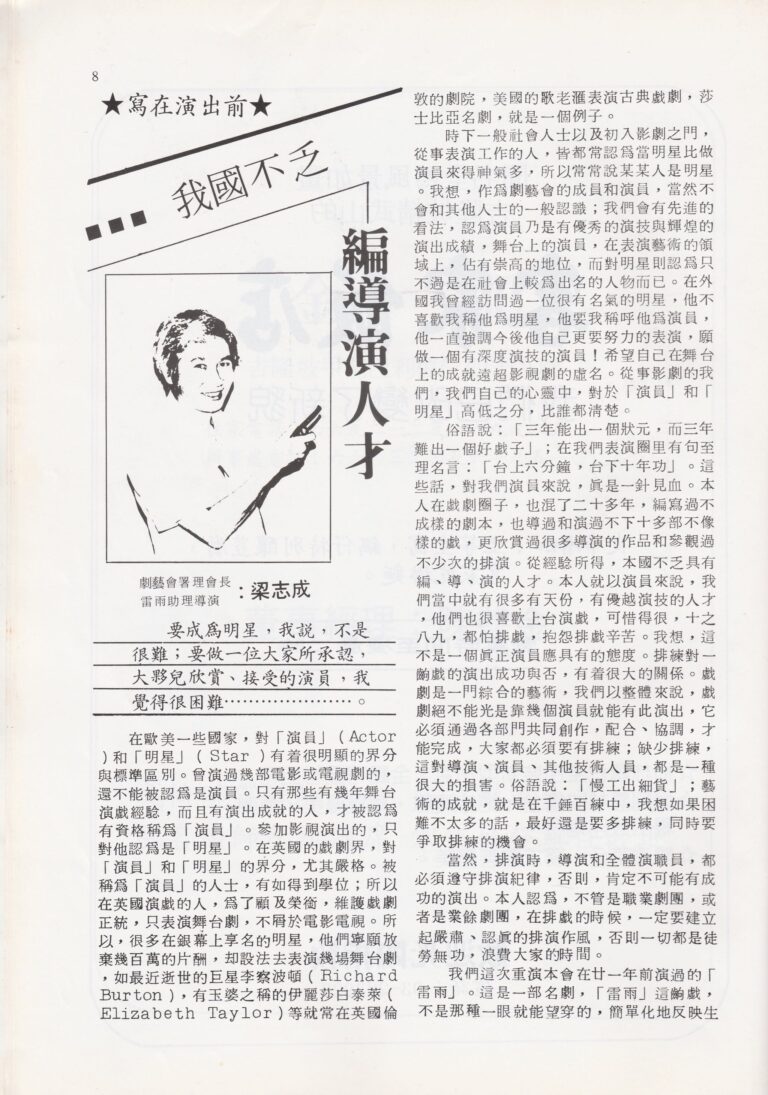 8
★寫在演出前★
■■■ 我國不乏
編導演人才
劇藝會署理會長
雷雨助理導演
：梁志成
要成爲明星，我說，不是
很難；要做一位大家所承認，
大夥兒欣賞、接受的演員，我
覺得很困難…………………。
在歐美一些國家，對「演員」(Actor
)和「明星」( Star )有着很明顯的界分
與標準區別。曾演過幾部電影或電視劇的，
還不能被認爲是演員。只有那些有幾年舞台
演戲經驗，而且有演出成就的人，才被認爲
有資格稱爲「演員」。參加影視演出的，只
對他認爲是「明星」。在英國的戲劇界，對
「演員」和「明星」的界分，尤其嚴格。被
稱爲「演員」的人士，有如得到學位；所以
在英國演戲的人，爲了顧及榮銜，維護戲劇
正統，只表演舞台劇，不屑於電影電視。所
以，很多在銀幕上享名的明星，他們寧願放
棄幾百萬的片酬，却設法去表演幾場舞台劇
，如最近逝世的巨星李察波頓( Richard
Burton )，有玉婆之稱的伊麗莎白泰萊(
Elizabeth Taylor )等就常在英國倫
敦的劇院，美國的歌老滙表演古典戲劇，莎
士比亞名劇，就是一個例子。
時下一般社會人士以及初入影劇之門，
從事表演工作的人，皆都常認爲當明星比做
演員來得神氣多，所以常常說某某人是明星
。我想，作爲劇藝會的成員和演員，當然不
會和其他人士的一般認識；我們會有先進的
看法，認爲演員乃是有優秀的演技與輝煌的
演出成績，舞台上的演員，在表演藝術的領
域上，佔有崇高的地位，而對明星則認爲只
不過是在社會上較爲出名的人物而已。在外
國我曾經訪問過一位很有名氣的明星，他不
喜歡我稱他爲明星，他要我稱呼他爲演員，
他一直強調今後他自己更要努力的表演，願
做一個有深度演技的演員！希望自己在舞台
上的成就遠超影視劇的虛名。從事影劇的我
們，我們自己的心靈中，對於「演員」和「
明星」高低之分，比誰都清楚。
俗語說：「三年能出一個狀元，而三年
難出一個好戲子」；在我們表演圈里有句至
理名言：「台上六分鐘，台下十年功」。這
些話，對我們演員來說，眞是一針見血。本
人在戲劇圈子，也混了二十多年，編寫過不
成樣的劇本，也導過和演過不下十多部不像
樣的戲，更欣賞過很多導演的作品和參觀過
不少次的排演。從經驗所得，本國不乏具有
編、導、演的人才。本人就以演員來說，我
們當中就有很多有天份，有優越演技的人才
，他們也很喜歡上台演戲，可惜得很，十之
八九，都怕排戲，抱怨排戲辛苦。我想，這
不是一個眞正演員應具有的態度。排練對一
齣戲的演出成功與否，有着很大的關係。戲
劇是一門綜合的藝術，我們以整體來說，戲
劇絕不能光是靠幾個演員就能有此演出，它
必須通過各部門共同創作，配合、協調，才
能完成，大家都必須要有排練；缺少排練，
這對導演、演員、其他技術人員，都是一種
很大的損害。俗語說：「慢工出細貨」；藝
術的成就，就是在千錘百練中，我想如果困
難不太多的話，最好還是要多排練，同時要
爭取排練的機會。
當然，排演時，導演和全體演職員，都
必須遵守排演紀律，否則，肯定不可能有成
功的演出。本人認爲，不管是職業劇團，或
者是業餘劇團，在排戲的時候，一定要建立
起嚴肅、認眞的排演作風，否則一切都是徒
勞無功，浪費大家的時間。
我們這次重演本會在廿一年前演過的「
雷雨」。這是一部名劇，「雷雨」這齣戲，
不是那種一眼就能望穿的，簡單化地反映生